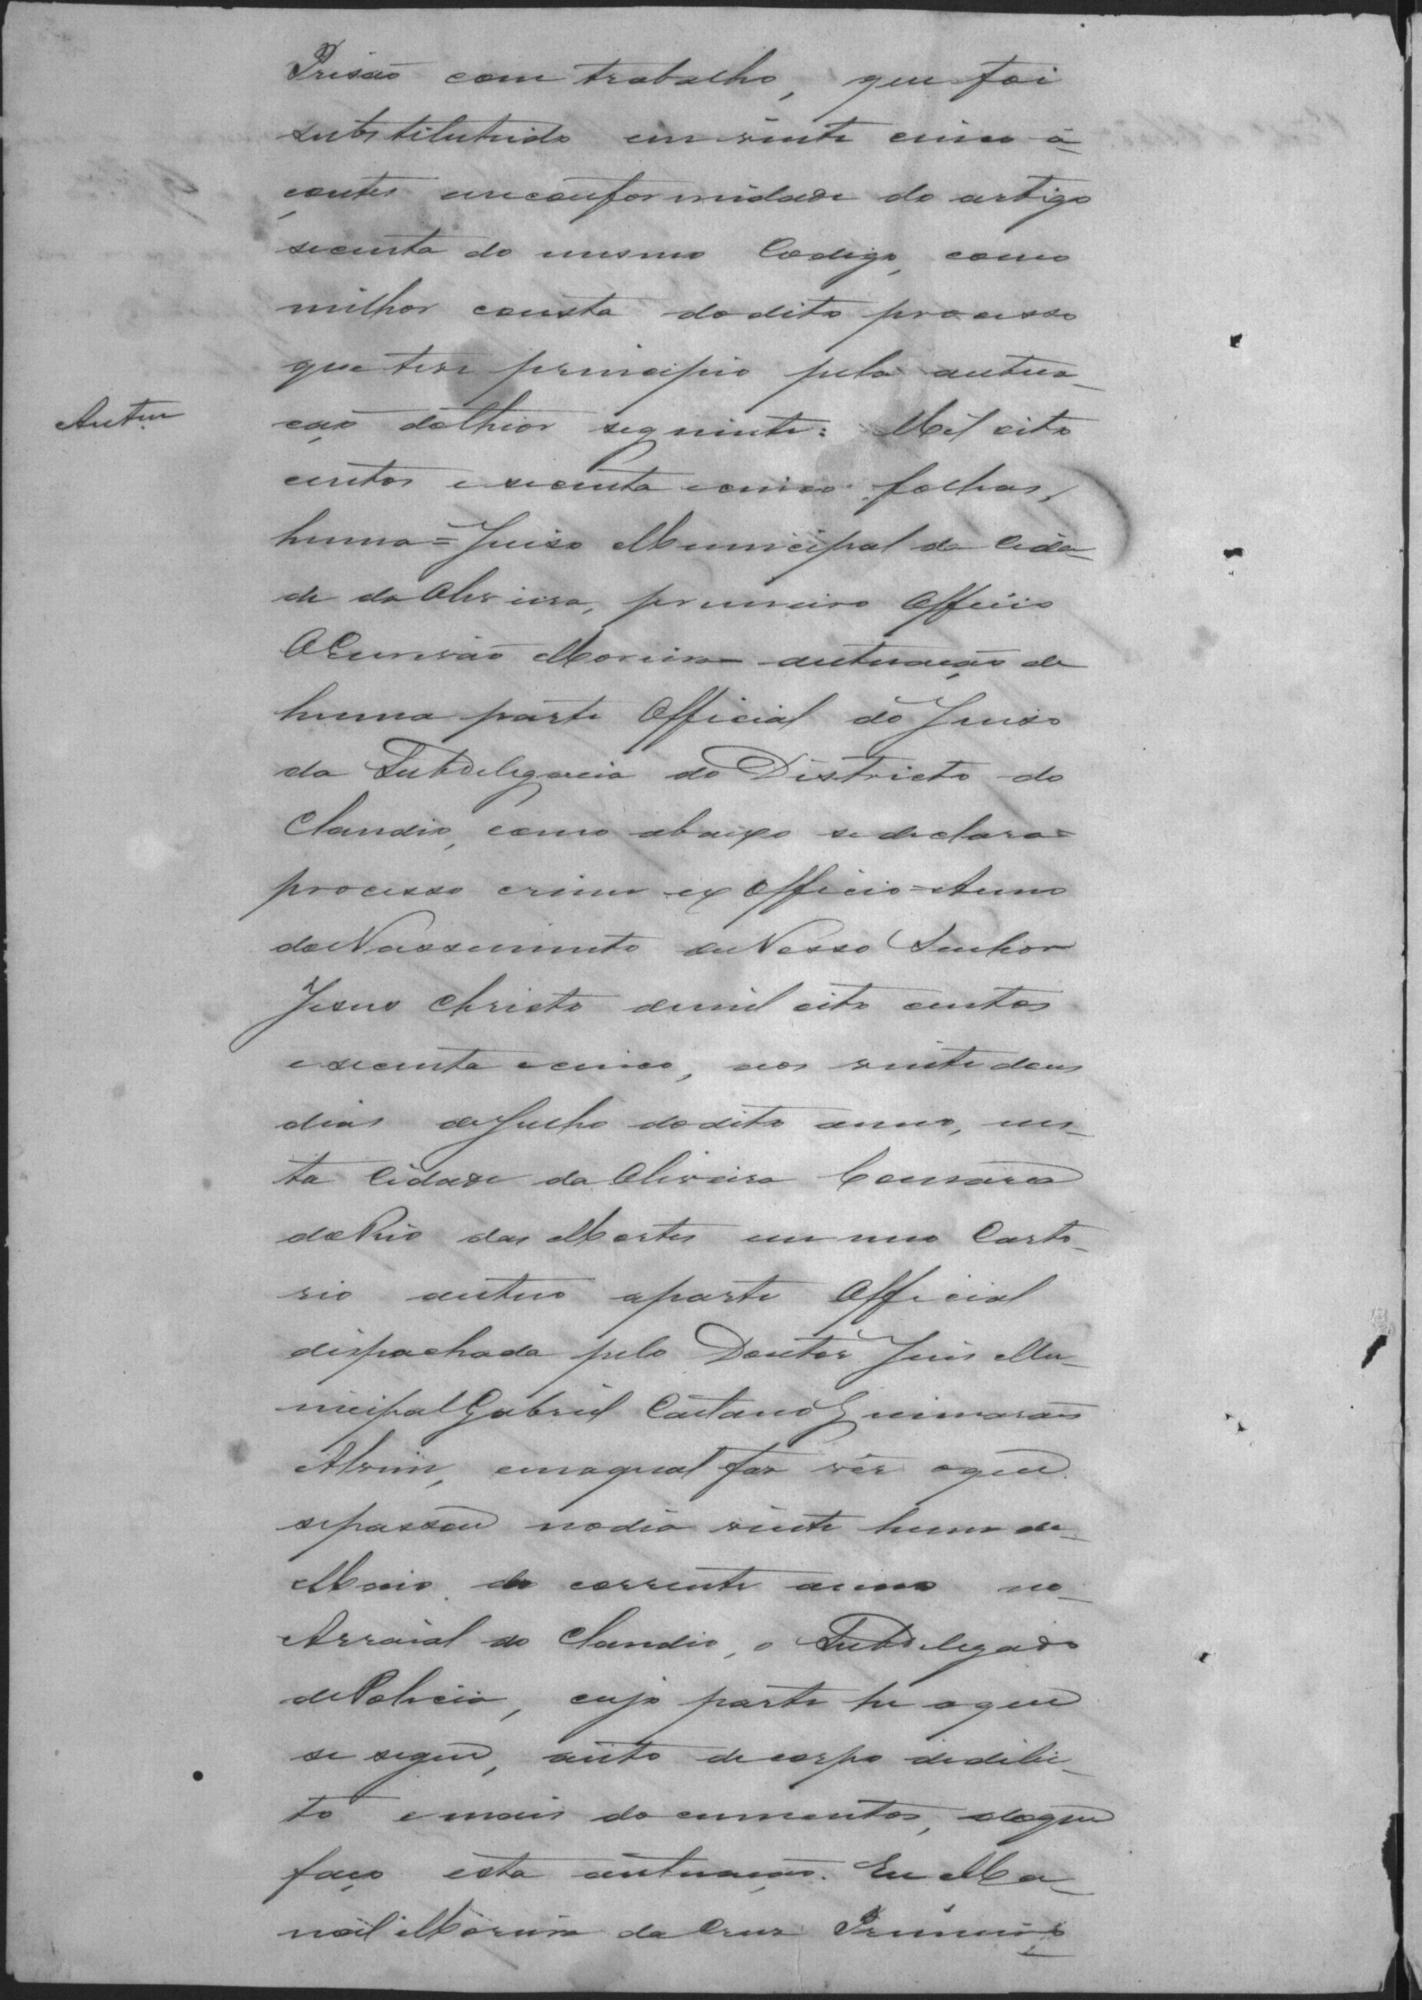 Prisão com trabalho, que foi
substituida em vinte cinco a-
çoutes em conformidade do artigo
secenta do mesmo Codigo, como
milhor consta do dito processo
que teve principio pela autua-
Autm
ção dotheor seguinte: Mil oito
centos e secenta e cinco folhas,
huma = Juiso Municipal da Cida-
de da Oliveira, primeiro Officio
O Escrivão Moreira autuação de
huma parte Official do Juiso
da Subdelegacia do Districto do
Claudio, como abaixo se declara =
processo crime ex Officio = Anno
do Nascimento de Nosso Senhor
Jesus Christo de mil oito centos
e secenta e cinco, aos vinte dous
dias de Julho do dito anno, nes-
ta Cidade da Oliveira Comarca
do Rio das Mortes em meu Carto-
rio autuo a parte Official
dispachada pelo Doutor Juis Mu-
nicipal Gabriel Caetano Guimarães
Alvim, em a qual faz vêr o que
se passou no dia vinte hum de
Maio do corrente anno no
Arraial do Claudio, o Subdelegado
de Policia, cuja parte he o que
se segue, auto de corpo de delic-
to e mais documentos, do que
faço esta autuação. Eu Ma-
noel Moreira da Cruz Primeiro